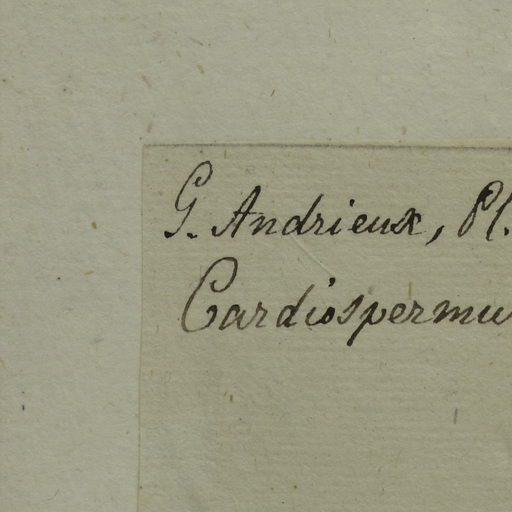 G. Andrieux, Pl.
Cardiospermu